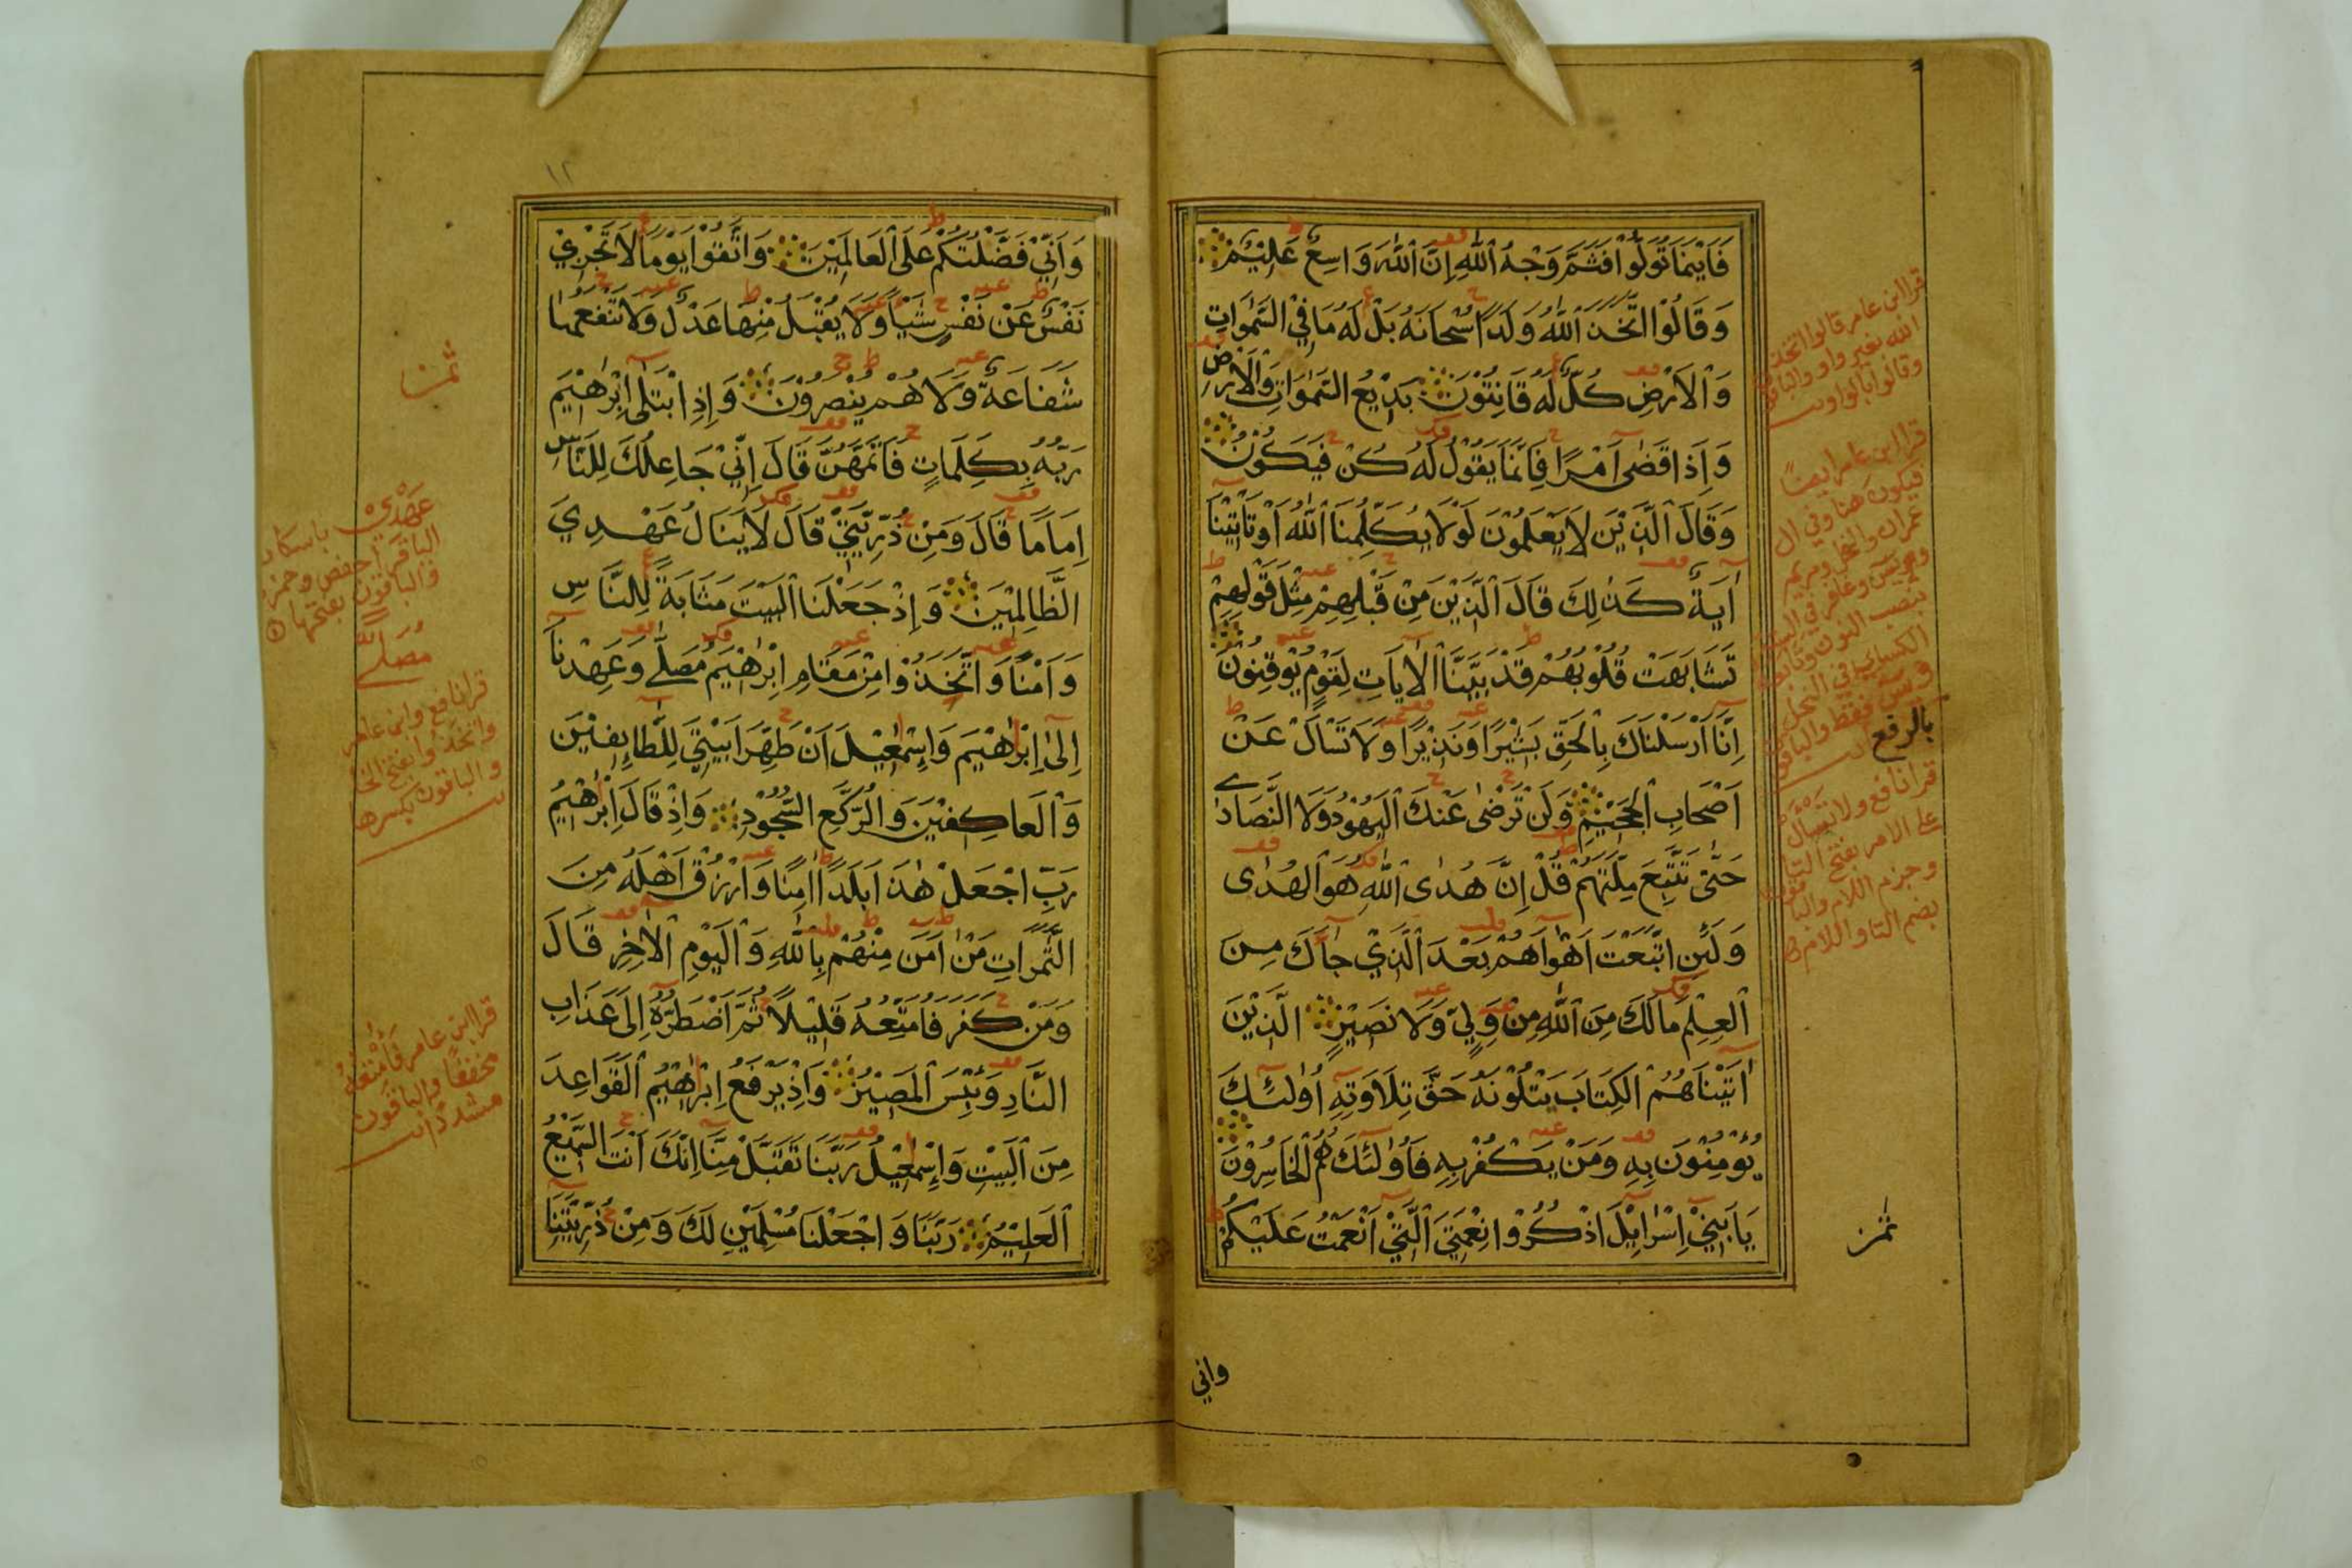 فَاَيْنَمَا تُوَلُّوْا فَثَمَّ وَجْهُ اللّٰهِ اِنَّ اللّٰهَ وَاسِعٌ عَلِيْمٌ
وَقَالُوْا اتَّخَذَ اللّٰهُ وَلَدًا سُبْحَانَهُ بَلْ لَهُ مَا فِي السَّمٰوَاتِ
وَالْاَرْضِ كُلٌّ لَهُ قَانِتُوْنَ بَدِيْعُ السَّمٰوَاتِ وَالْاَرْضِ
وَاِذَا قَضٰى اَمْرًا فَاِنَّمَا يَقُوْلُ لَهُ كُنْ فَيَكُوْنُ
وَقَالَ الَّذِيْنَ لَا يَعْلَمُوْنَ لَوْلَا يُكَلِّمُنَا اللّٰهُ اَوْ تَاْتِيْنَا
اٰيَةٌ كَذٰلِكَ قَالَ الَّذِيْنَ مِنْ قَبْلِهِمْ مِثْلَ قَوْلِهِمْ
تَشَابَهَتْ قُلُوْبُهُمْ قَدْ بَيَّنَّا الْاٰيَاتِ لِقَوْمٍ يُوْقِنُوْنَ
اِنَّا اَرْسَلْنَاكَ بِالْحَقِّ بَشِيْرًا وَنَذِيْرًا وَلَا تَسْاَلْ عَنْ
اَصْحَابِ الْجَحِيْمِ وَلَنْ تَرْضٰى عَنْكَ الْيَهُوْدُ وَلَا النَّصَارٰى
حَتّٰى تَتَّبِعَ مِلَّتَهُمْ قُلْ اِنَّ هُدَى اللّٰهِ هُوَ الْهُدٰى
وَلَئِنِ اتَّبَعْتَ اَهْوَاءَهُمْ بَعْدَ الَّذِيْ جَاءَكَ مِنَ
الْعِلْمِ مَا لَكَ مِنَ اللّٰهِ مِنْ وَلِيٍّ وَلَا نَصِيْرٍ الَّذِيْنَ
اٰتَيْنَاهُمُ الْكِتَابَ يَتْلُوْنَهُ حَقَّ تِلَاوَتِهِ اُولٰئِكَ
يُؤْمِنُوْنَ بِهِ وَمَنْ يَكْفُرْ بِهِ فَاُولٰئِكَ هُمُ الْخَاسِرُوْنَ
يَا بَنِيْ اِسْرَائِيْلَ اذْكُرُوْا نِعْمَتِيَ الَّتِيْ اَنْعَمْتُ عَلَيْكُمْ
واني
قرا ابن عامر قالوا اتخذ
الله بغير واو والباقون
وقالوا بالواو
قرا ابن عامر ايضًا
فيكون هنا وفي ال
عمران والنحل ومريم
ويس وغافر في الستة
بنصب النون وتابعه
الكسائي في النحل
ويس فقط والباقون
بالرفع
قرا نافع ولا تَسْأَلْ
على الامر بفتح التا
وجزم اللام والباقون
بضم التا واللام
ثمن
١٢
وَاَنِّيْ فَضَّلْتُكُمْ عَلَى الْعَالَمِيْنَ وَاتَّقُوْا يَوْمًا لَا تَجْزِيْ
نَفْسٌ عَنْ نَفْسٍ شَيْئًا وَلَا يُقْبَلُ مِنْهَا عَدْلٌ وَلَا تَنْفَعُهَا
شَفَاعَةٌ وَلَا هُمْ يُنْصَرُوْنَ وَاِذِ ابْتَلٰى اِبْرٰهِيْمَ
رَبُّهُ بِكَلِمَاتٍ فَاَتَمَّهُنَّ قَالَ اِنِّيْ جَاعِلُكَ لِلنَّاسِ
اِمَامًا قَالَ وَمِنْ ذُرِّيَّتِيْ قَالَ لَا يَنَالُ عَهْدِيَ
الظَّالِمِيْنَ وَاِذْ جَعَلْنَا الْبَيْتَ مَثَابَةً لِلنَّاسِ
وَاَمْنًا وَاتَّخَذُوْا مِنْ مَقَامِ اِبْرٰهِيْمَ مُصَلًّى وَعَهِدْنَا
اِلٰى اِبْرٰهِيْمَ وَاِسْمٰعِيْلَ اَنْ طَهِّرَا بَيْتِيَ لِلطَّائِفِيْنَ
وَالْعَاكِفِيْنَ وَالرُّكَّعِ السُّجُوْدِ وَاِذْ قَالَ اِبْرٰهِيْمُ
رَبِّ اجْعَلْ هٰذَا بَلَدًا اٰمِنًا وَارْزُقْ اَهْلَهُ مِنَ
الثَّمَرَاتِ مَنْ اٰمَنَ مِنْهُمْ بِاللّٰهِ وَالْيَوْمِ الْاٰخِرِ قَالَ
وَمَنْ كَفَرَ فَاُمَتِّعُهُ قَلِيْلًا ثُمَّ اَضْطَرُّهُ اِلٰى عَذَابِ
النَّارِ وَبِئْسَ الْمَصِيْرُ وَاِذْ يَرْفَعُ اِبْرٰهِيْمُ الْقَوَاعِدَ
مِنَ الْبَيْتِ وَاِسْمٰعِيْلُ رَبَّنَا تَقَبَّلْ مِنَّا اِنَّكَ اَنْتَ السَّمِيْعُ
الْعَلِيْمُ رَبَّنَا وَاجْعَلْنَا مُسْلِمَيْنِ لَكَ وَمِنْ ذُرِّيَّتِنَا
ثمن
عَهْدِيْ باسكان
اليا حفص وحمزة
والباقون بفتحها
مُصَلًّى
قرا نافع وابن عامر
واتخذوا بفتح الخا
والباقون بكسرها
قرا ابن عامر فَاُمْتِعُهُ
مخففًا والباقون
مشددًا